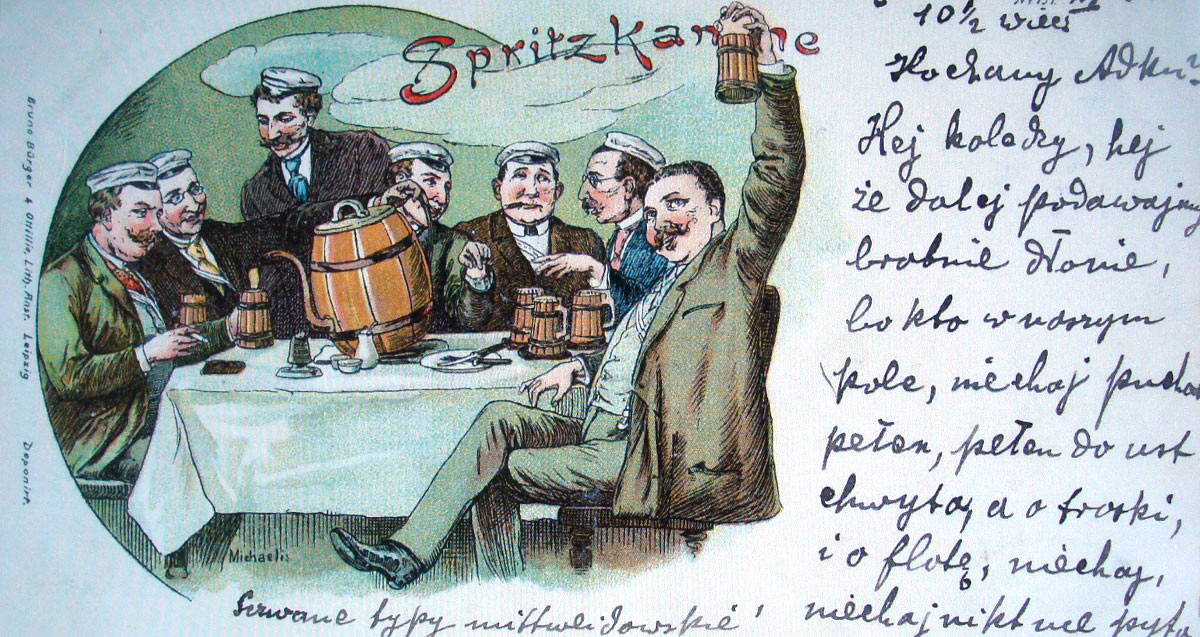 Spritzkanne
Bruno Bürger & Ottillie, Lith. Anst. Leipzig
Deponirt.
Michaelis
10 1/2 wiecz
Kochany Adku!
Hej koledzy, hej
że dalej podawajmy
brobnie dłonie,
bo kto w naszym
kole, niechaj pucha
pełen, pełen do ust
chwyta, a o troski,
i o flotę, niechaj,
niechaj nikt nie pyta
typy mittweidowskie!